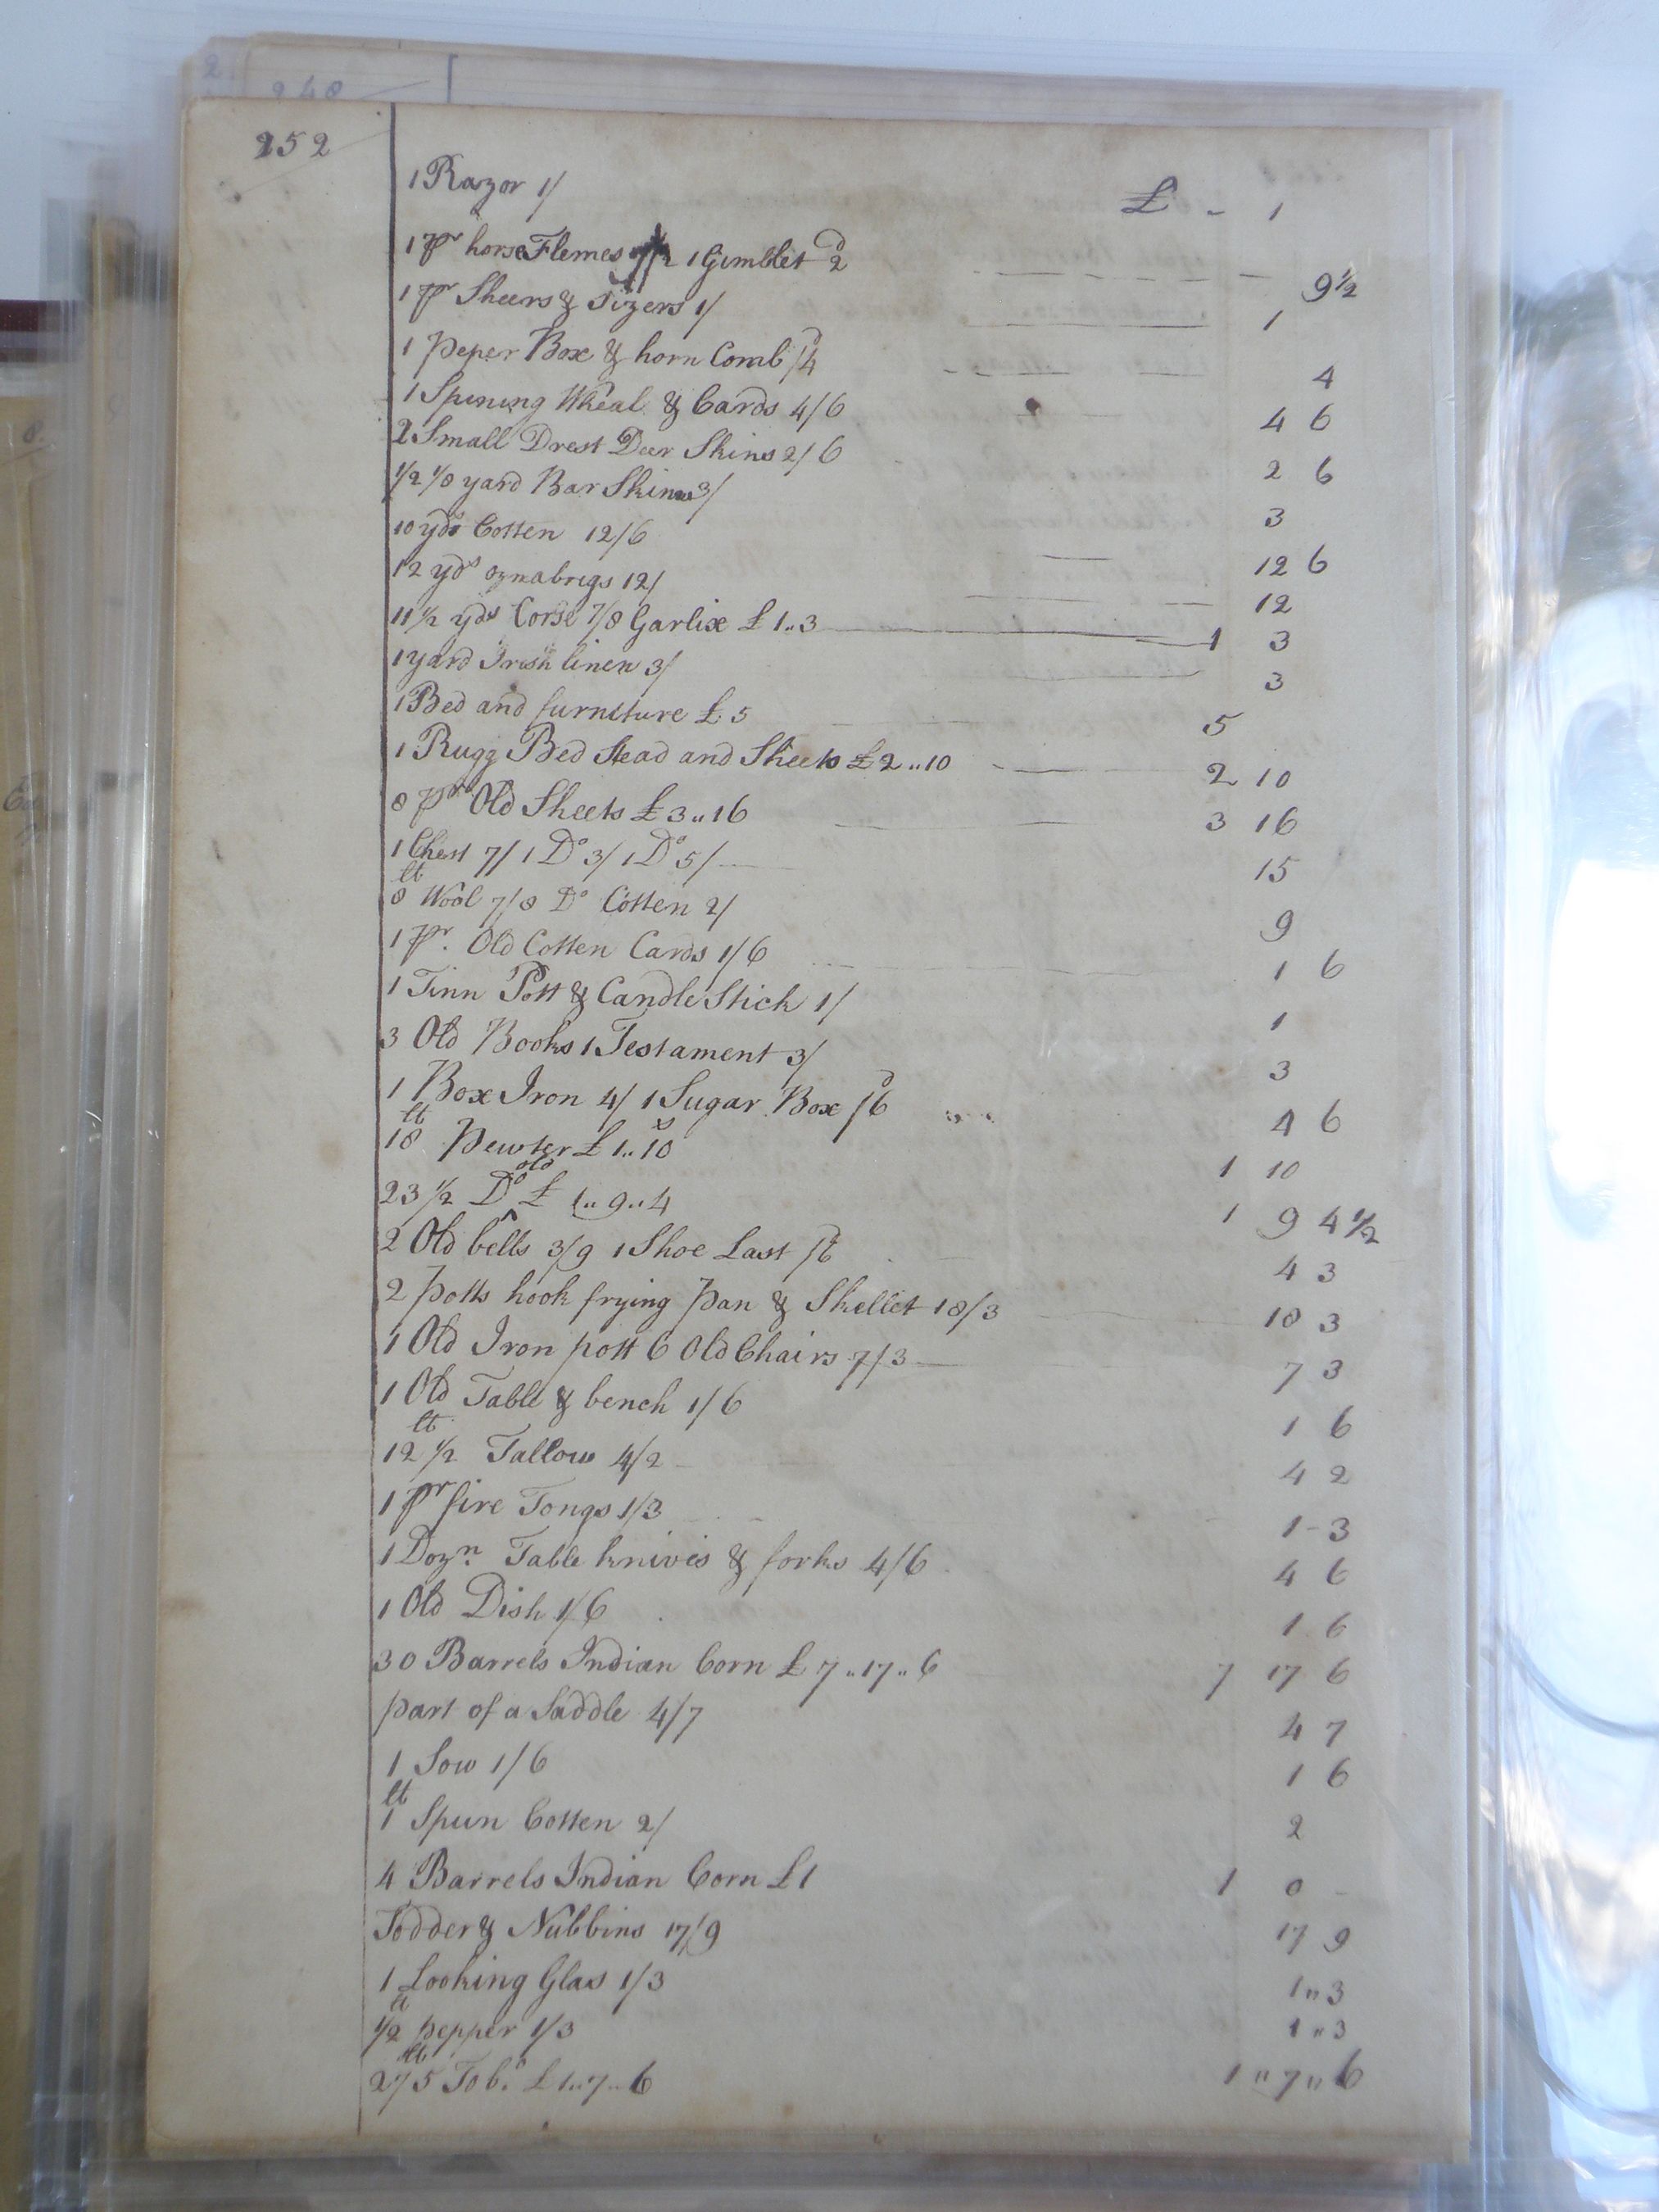 240
252
1 Razor 1/ £ - 1
1 pr horse Flemes 1 Gimblet 2d 9½
1 pr Sheers & Sizers 1/ 1
1 Peper Box & horn Comb /4d 4
1 Spining Wheal & Cards 4/6 4 6
2 Small Drest Deer Skins 2/6 2 6
1/2 1/8 yard Bar Skin 3/ 3
10 yds Cotten 12/6 12 6
12 yds oznabrigs 12/ 12
11½ yds Corse 7/8 Garlix £1..3 1 3
1 yard Irish linen 3/ 3
1 Bed and furniture £5 5
1 Rugg Bed Stead and Sheets £2..10 2 10
8 pr Old Sheets £3..16 3 16
1 Chest 7/ 1 Do 3/ 1 Do 5/ 15
8 lt Wool 7/ 8 Do Cotten 2/ 9
1 pr. Old Cotten Cards 1/6 1 6
1 Tinn Pott & Candle Stick 1/ 1
3 Old Books 1 Testament 3/ 3
1 Box Iron 4/ 1 Sugar Box /6d 4 6
18 lt Pewter £1..10 1 10
23½ Do old £1..9..4 1 9 4½
2 Old bells 3/9 1 Shoe Last /6d 4 3
2 potts hook frying pan & Skellet 18/3 18 3
1 Old Iron pott 6 Old Chairs 7/3 7 3
1 Old Table & bench 1/6 1 6
12½ lt Tallow 4/2 4 2
1 pr fire Tongs 1/3 1-3
1 Dozn. Table knives & forks 4/6 4 6
1 Old Dish 1/6 1 6
30 Barrels Indian Corn £7..17..6 7 17 6
part of a Saddle 4/7 4 7
1 Sow 1/6 1 6
1 lt Spun Cotten 2/ 2
4 Barrels Indian Corn £1 1 0 -
Fodder & Nubbins 17/9 17 9
1 Looking Glas 1/3 1"3
½ lt pepper 1/3 1"3
275 lt Tobo. £1..7..6 1"7"6